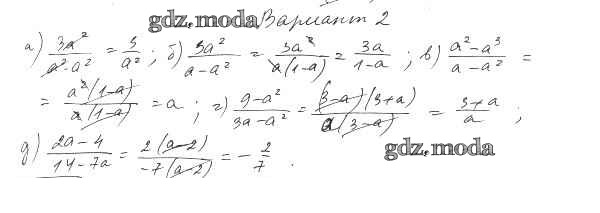 gdz.moda Вариант 2
а) 3a²/(a²·a²) = 3/a² ; б) 3a²/(a-a²) = 3a²/(a(1-a)) = 3a/(1-a) ; в) (a²-a³)/(a-a²) =
= a²(1-a)/(a(1-a)) = a ; г) (9-a²)/(3a-a²) = (3-a)(3+a)/(a(3-a)) = (3+a)/a ;
д) (2a-4)/(14-7a) = 2(a-2)/(-7(a-2)) = -2/7 . gdz.moda